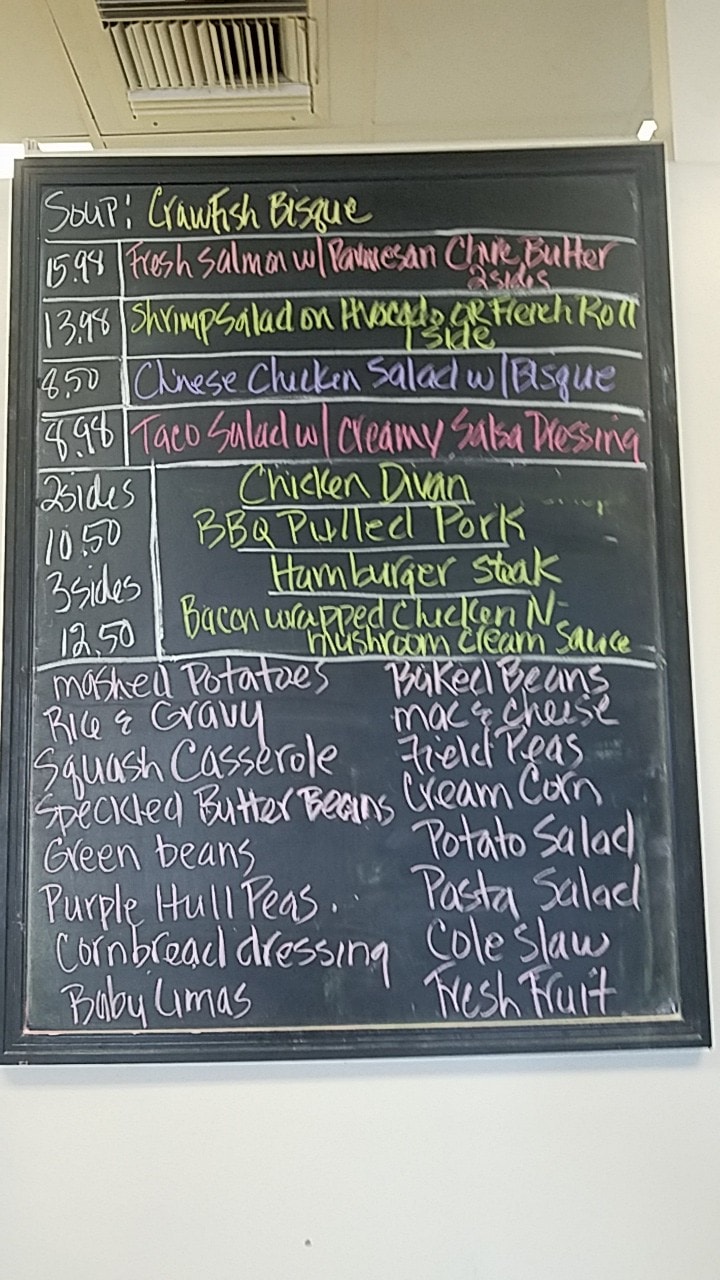 Soup: Crawfish Bisque
15.98 Fresh Salmon w/ Parmesan Chive Butter
2 sides
13.98 Shrimp Salad on Avocado or French Roll
1 side
8.50 Chinese Chicken Salad w/ Bisque
8.98 Taco Salad w/ Creamy Salsa Dressing
2 sides
10.50
3 sides
12.50
Chicken Divan
BBQ Pulled Pork
Hamburger Steak
Bacon wrapped Chicken N-
mushroom cream sauce
mashed Potatoes
Rice & Gravy
Squash Casserole
Speckled Butter Beans
Green beans
Purple Hull Peas
Cornbread dressing
Baby Limas
Baked Beans
mac & cheese
Field Peas
Cream Corn
Potato Salad
Pasta Salad
Cole Slaw
Fresh Fruit